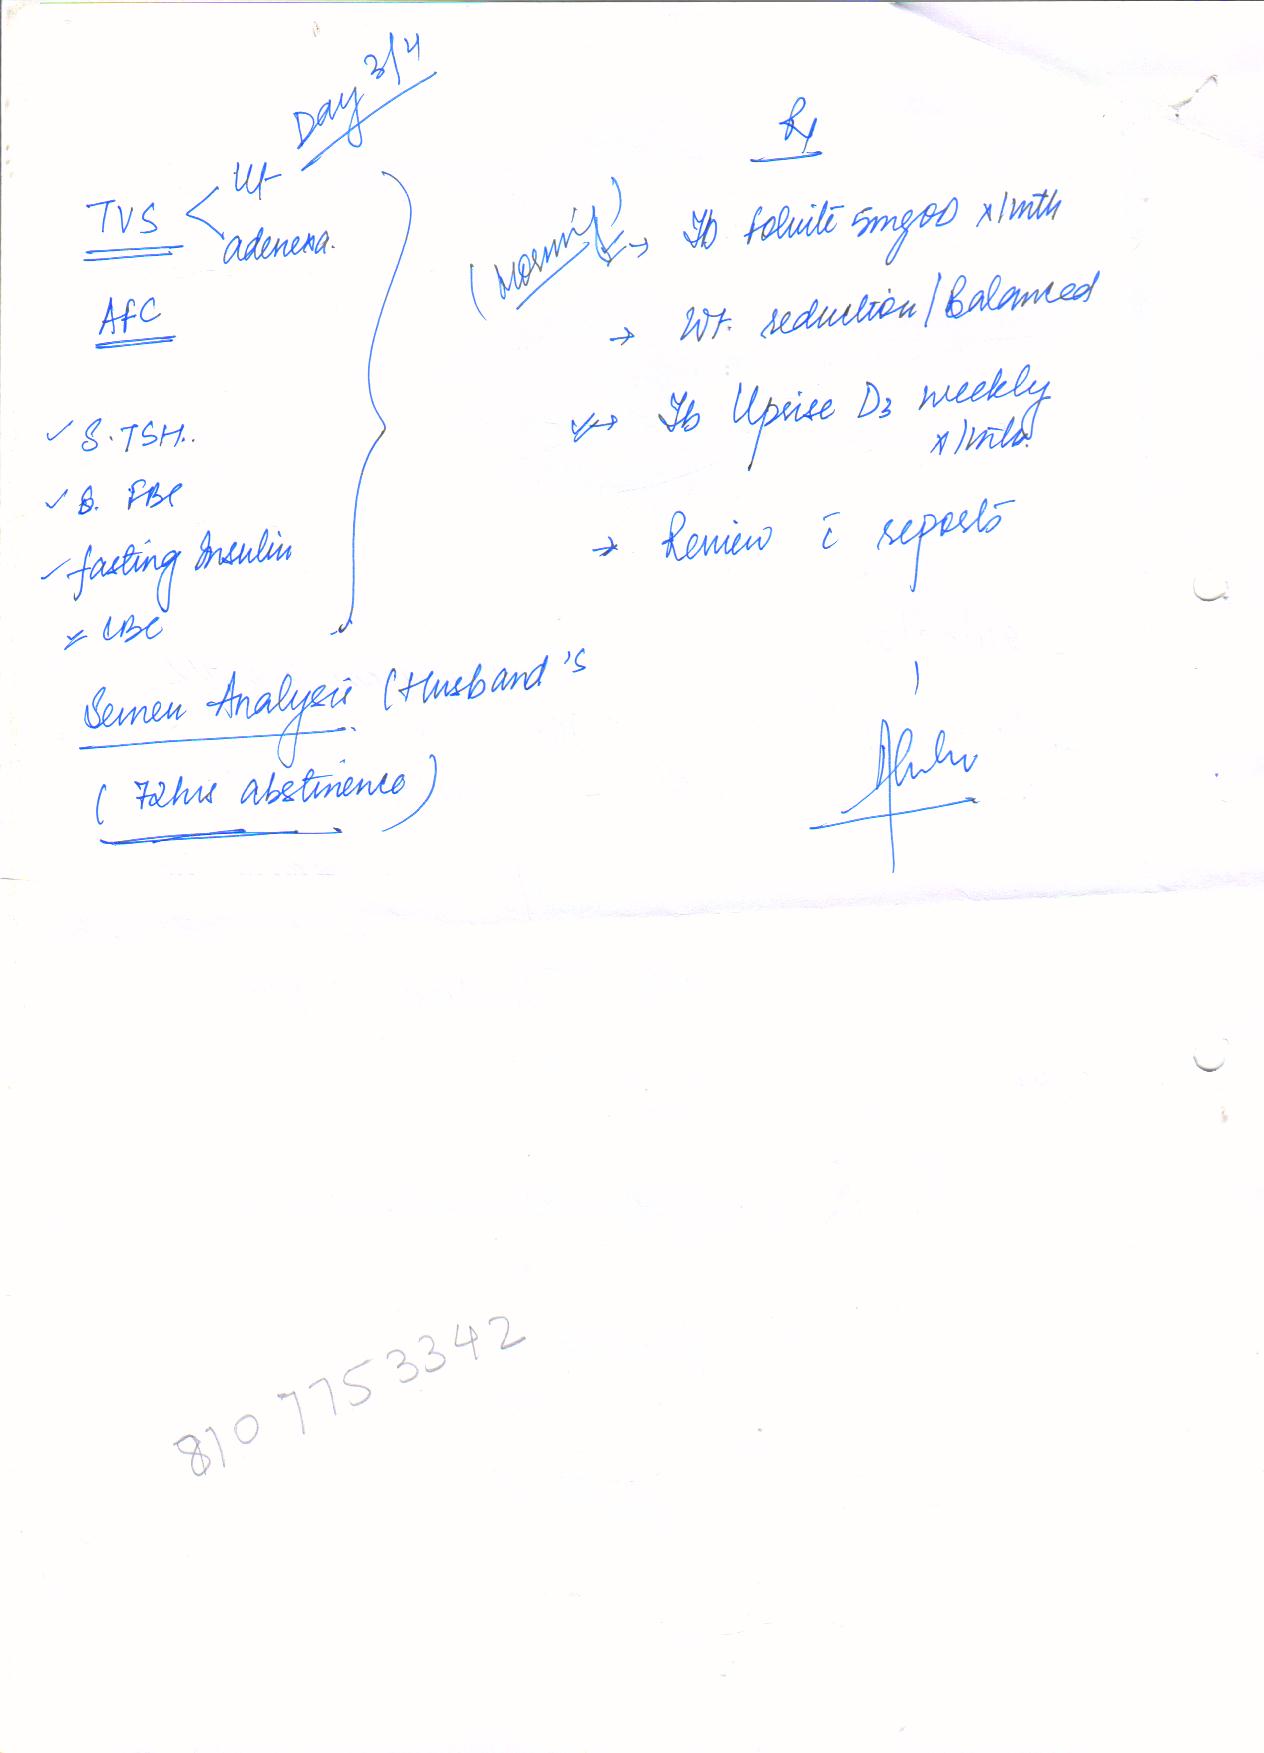 Day 3/4
TVS < Ut
adenexa.
AFC
S. TSH.
fasting Insulin
CBC
Semen Analysis (Husband's
(72hrs abstinence)
Rx
(Morning) → Tb folvite 5mg OD x 1mth
→ Wt. reduction / Balanced
→ Tb Uprise D3 weekly
x 1mth
→ Review c̄ reports
8107753342